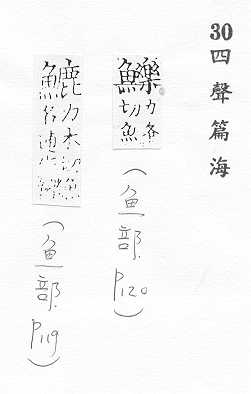 30 四聲篇海
鱳力各切魚
（魚部 P120）
力木切魚
（魚部 P119）